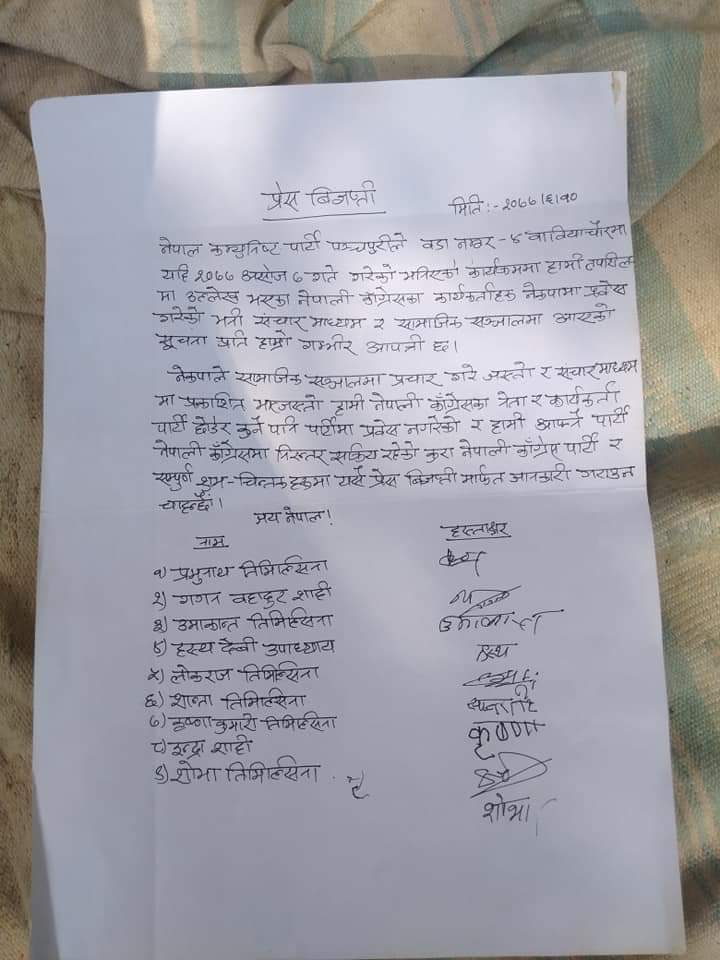 प्रेस बिज्ञप्ती
मिति:- २०७७।६।१०
नेपाल कम्युनिष्ट पार्टी पञ्चपुरीले वडा नम्बर - ४ बावियाचौरमा
यहि २०७७ असोज ७ गते गरेको भनिएको कार्यक्रममा हामी तपसिल
मा उल्लेख भएका नेपाली काँग्रेसका कार्यकर्ताहरु नेकपामा प्रवेस
गरेको भनी संचार माध्यम र सामाजिक सञ्जालमा आएको
सूचना प्रति हाम्रो गम्भीर आपत्ती छ।
नेकपाले सामाजिक सञ्जालमा प्रचार गरे जस्तो र संचार माध्यम
मा प्रकाशित भएजस्तो हामी नेपाली काँग्रेसका नेता र कार्यकर्ता
पार्टी छोडेर कुनै पनि पार्टीमा प्रवेस नगरेको र हामी आफ्नै पार्टी
नेपाली काँग्रेसमा निरन्तर सक्रिय रहेको कुरा नेपाली काँग्रेस पार्टी र
सम्पुर्ण शुभ-चिन्तक हरुमा यसै प्रेस बिज्ञप्ती मार्फत जानकारी गराउन
चाहन्छौं।
जय नेपाल!
नाम हस्ताक्षर
१) प्रभुनाथ तिमिल्सिना
२) गगन बहादुर शाही
३) उमाकान्त तिमिल्सिना
४) हस्य देवी उपाध्याय
५) लोकराज तिमिल्सिना
६) शान्ता तिमिल्सिना
७) कृष्णा कुमारी तिमिल्सिना कृष्णा
८) इन्द्रा शाही
९) शोभा तिमिल्सिना
शोभा